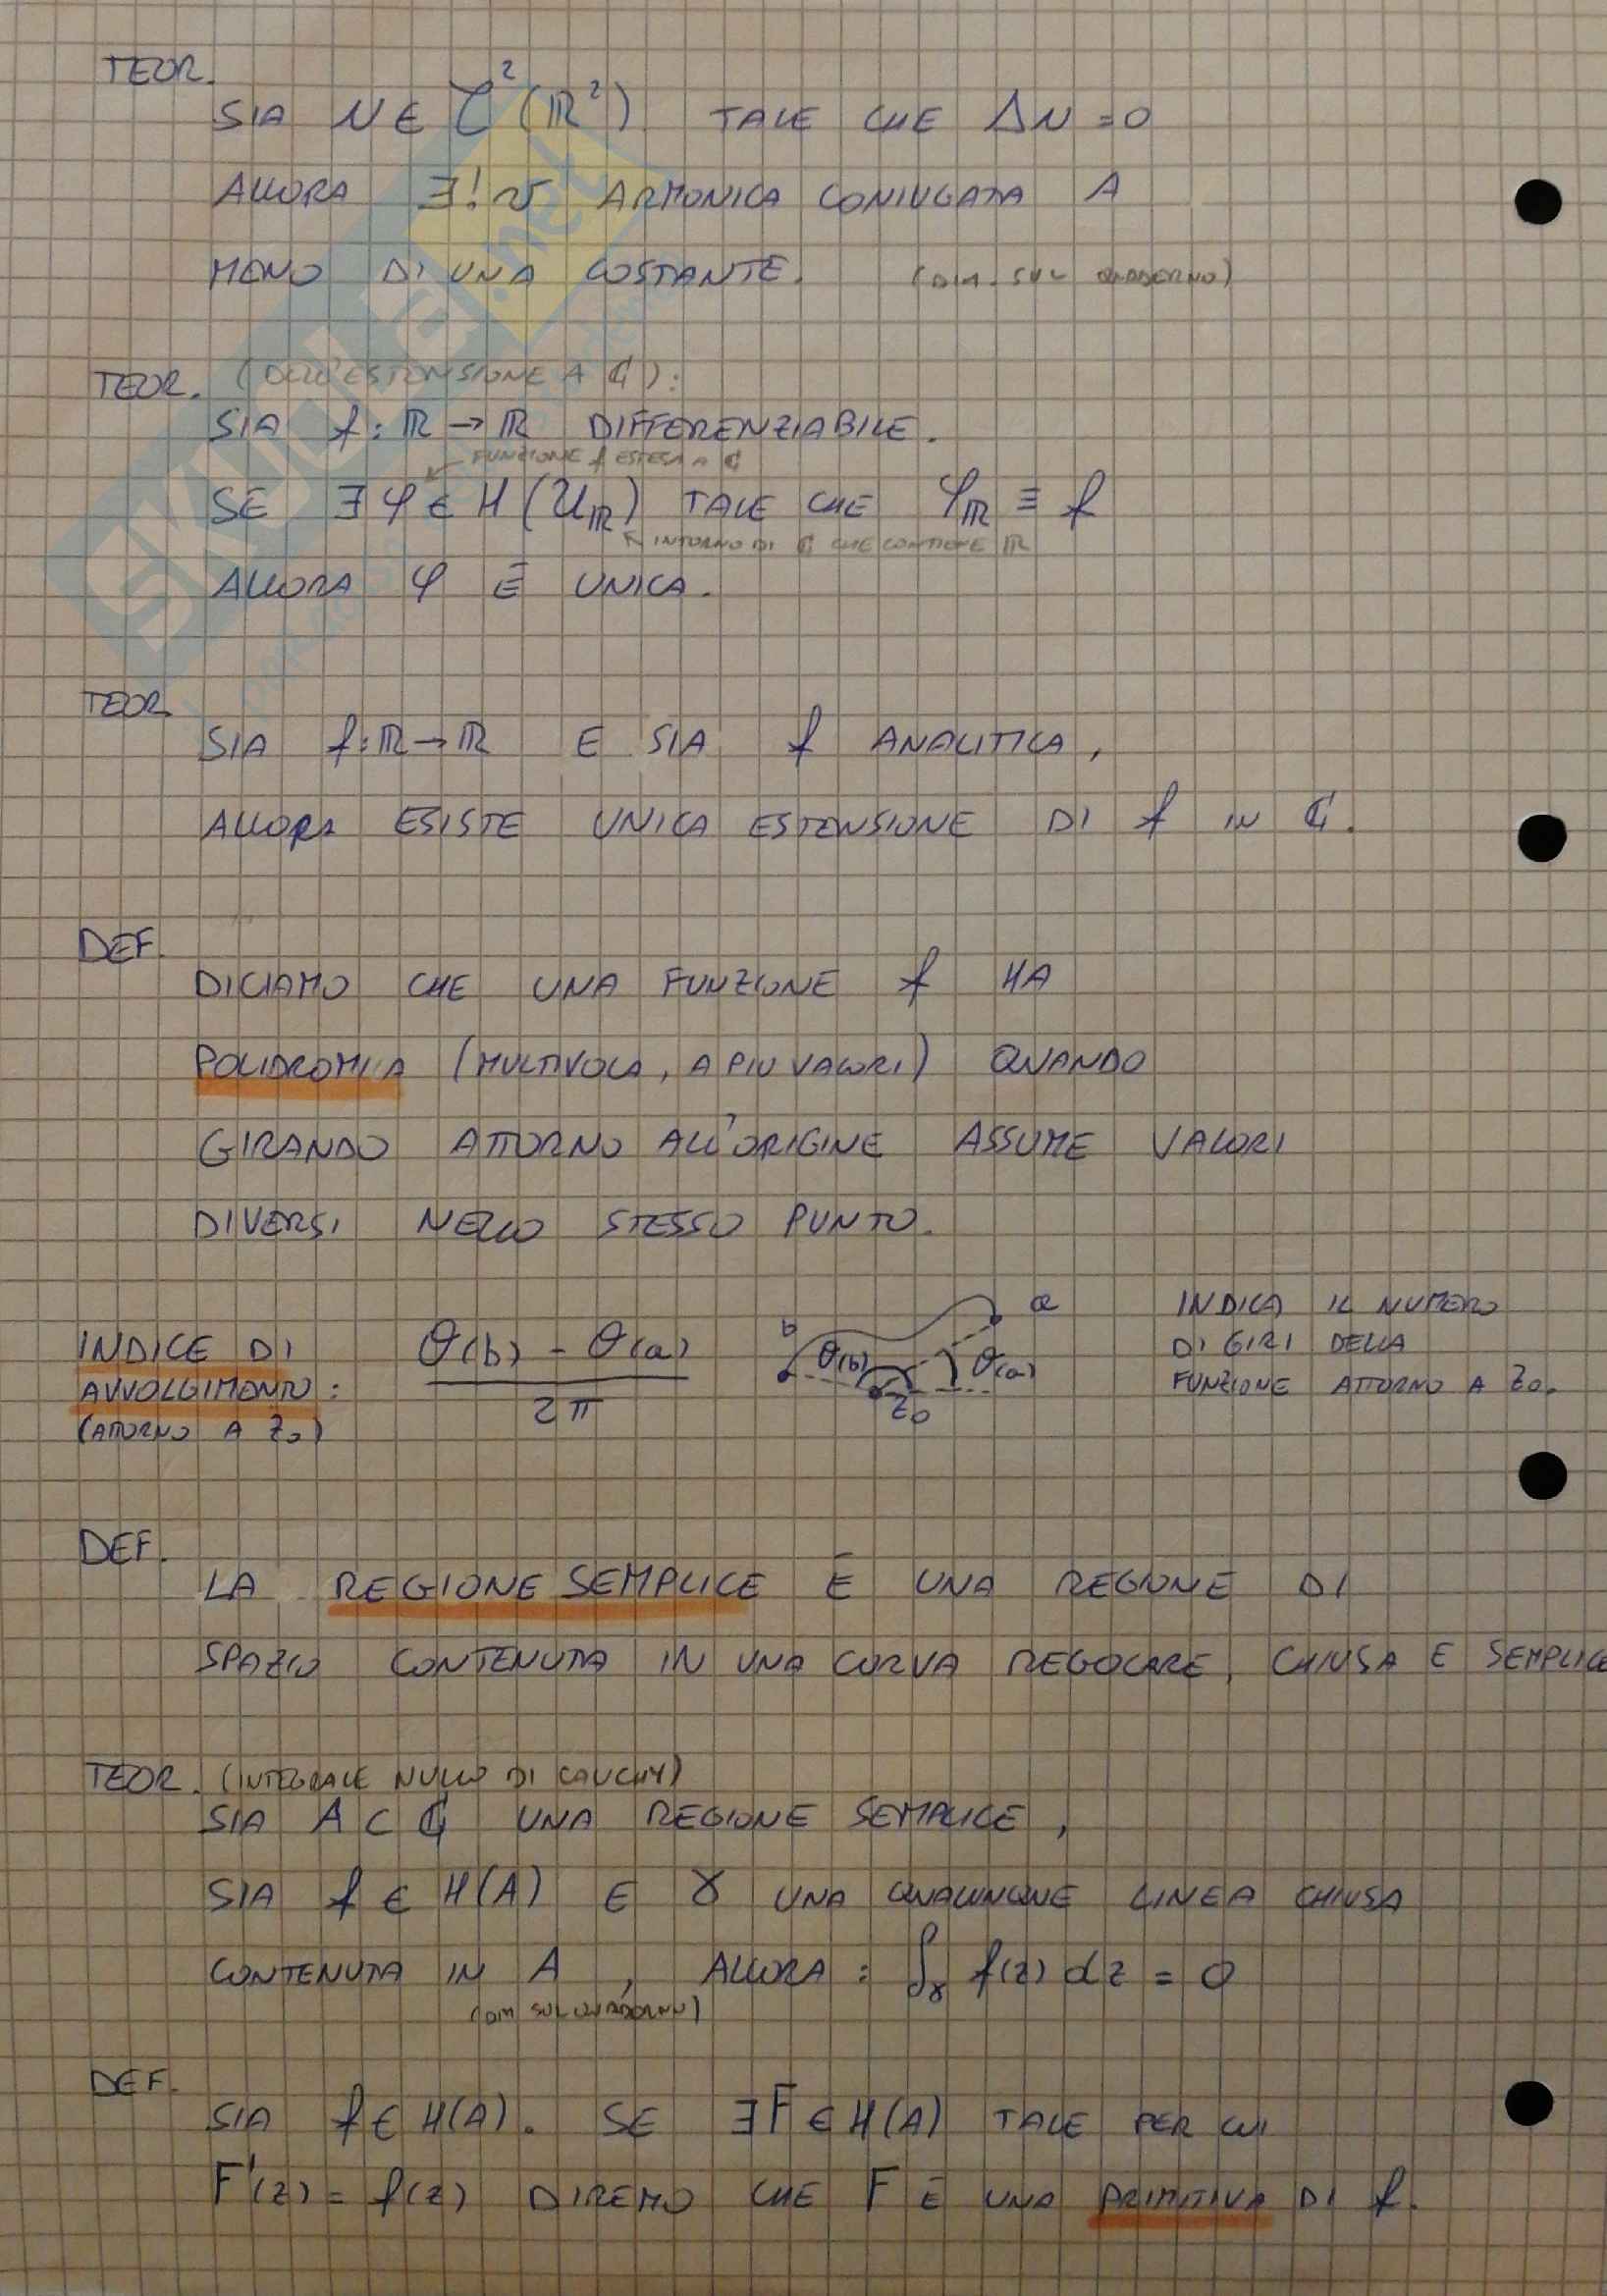 TEOR.
SIA u ∈ C²(ℝ²) TALE CHE Δu = 0
ALLORA ∃! v ARMONICA CONIUGATA A
MENO DI UNA COSTANTE. (DIM. SUL QUADERNO)
TEOR. (DELL'ESTENSIONE A ℂ):
SIA f: ℝ → ℝ DIFFERENZIABILE.
FUNZIONE f ESTESA A ℂ
SE ∃ φ ∈ H(U_ℝ) TALE CHE φ_ℝ ≡ f
INTORNO DI ℂ CHE CONTIENE ℝ
ALLORA φ È UNICA.
TEOR.
SIA f: ℝ → ℝ E SIA f ANALITICA,
ALLORA ESISTE UNICA ESTENSIONE DI f IN ℂ.
DEF.
DICIAMO CHE UNA FUNZIONE f HA
POLIDROMIA (MULTIVOLA, A PIU VALORI) QUANDO
GIRANDO ATTORNO ALL'ORIGINE ASSUME VALORI
DIVERSI NELLO STESSO PUNTO.
INDICE DI
AVVOLGIMENTO:
(ATTORNO A z₀)
θ(b) - θ(a)
2π
b
a
θ(b)
θ(a)
z₀
INDICA IL NUMERO
DI GIRI DELLA
FUNZIONE ATTORNO A z₀.
DEF.
LA REGIONE SEMPLICE È UNA REGIONE DI
SPAZIO CONTENUTA IN UNA CURVA REGOLARE, CHIUSA E SEMPLICE
TEOR. (INTEGRALE NULLO DI CAUCHY)
SIA A ⊂ ℂ UNA REGIONE SEMPLICE,
SIA f ∈ H(A) E γ UNA QUALUNQUE LINEA CHIUSA
CONTENUTA IN A, ALLORA: ∫_γ f(z) dz = 0
(DIM SUL QUADERNO)
DEF.
SIA f ∈ H(A). SE ∃ F ∈ H(A) TALE PER CUI
F'(z) = f(z) DIREMO CHE F È UNA PRIMITIVA DI f.
SKUOLA.net